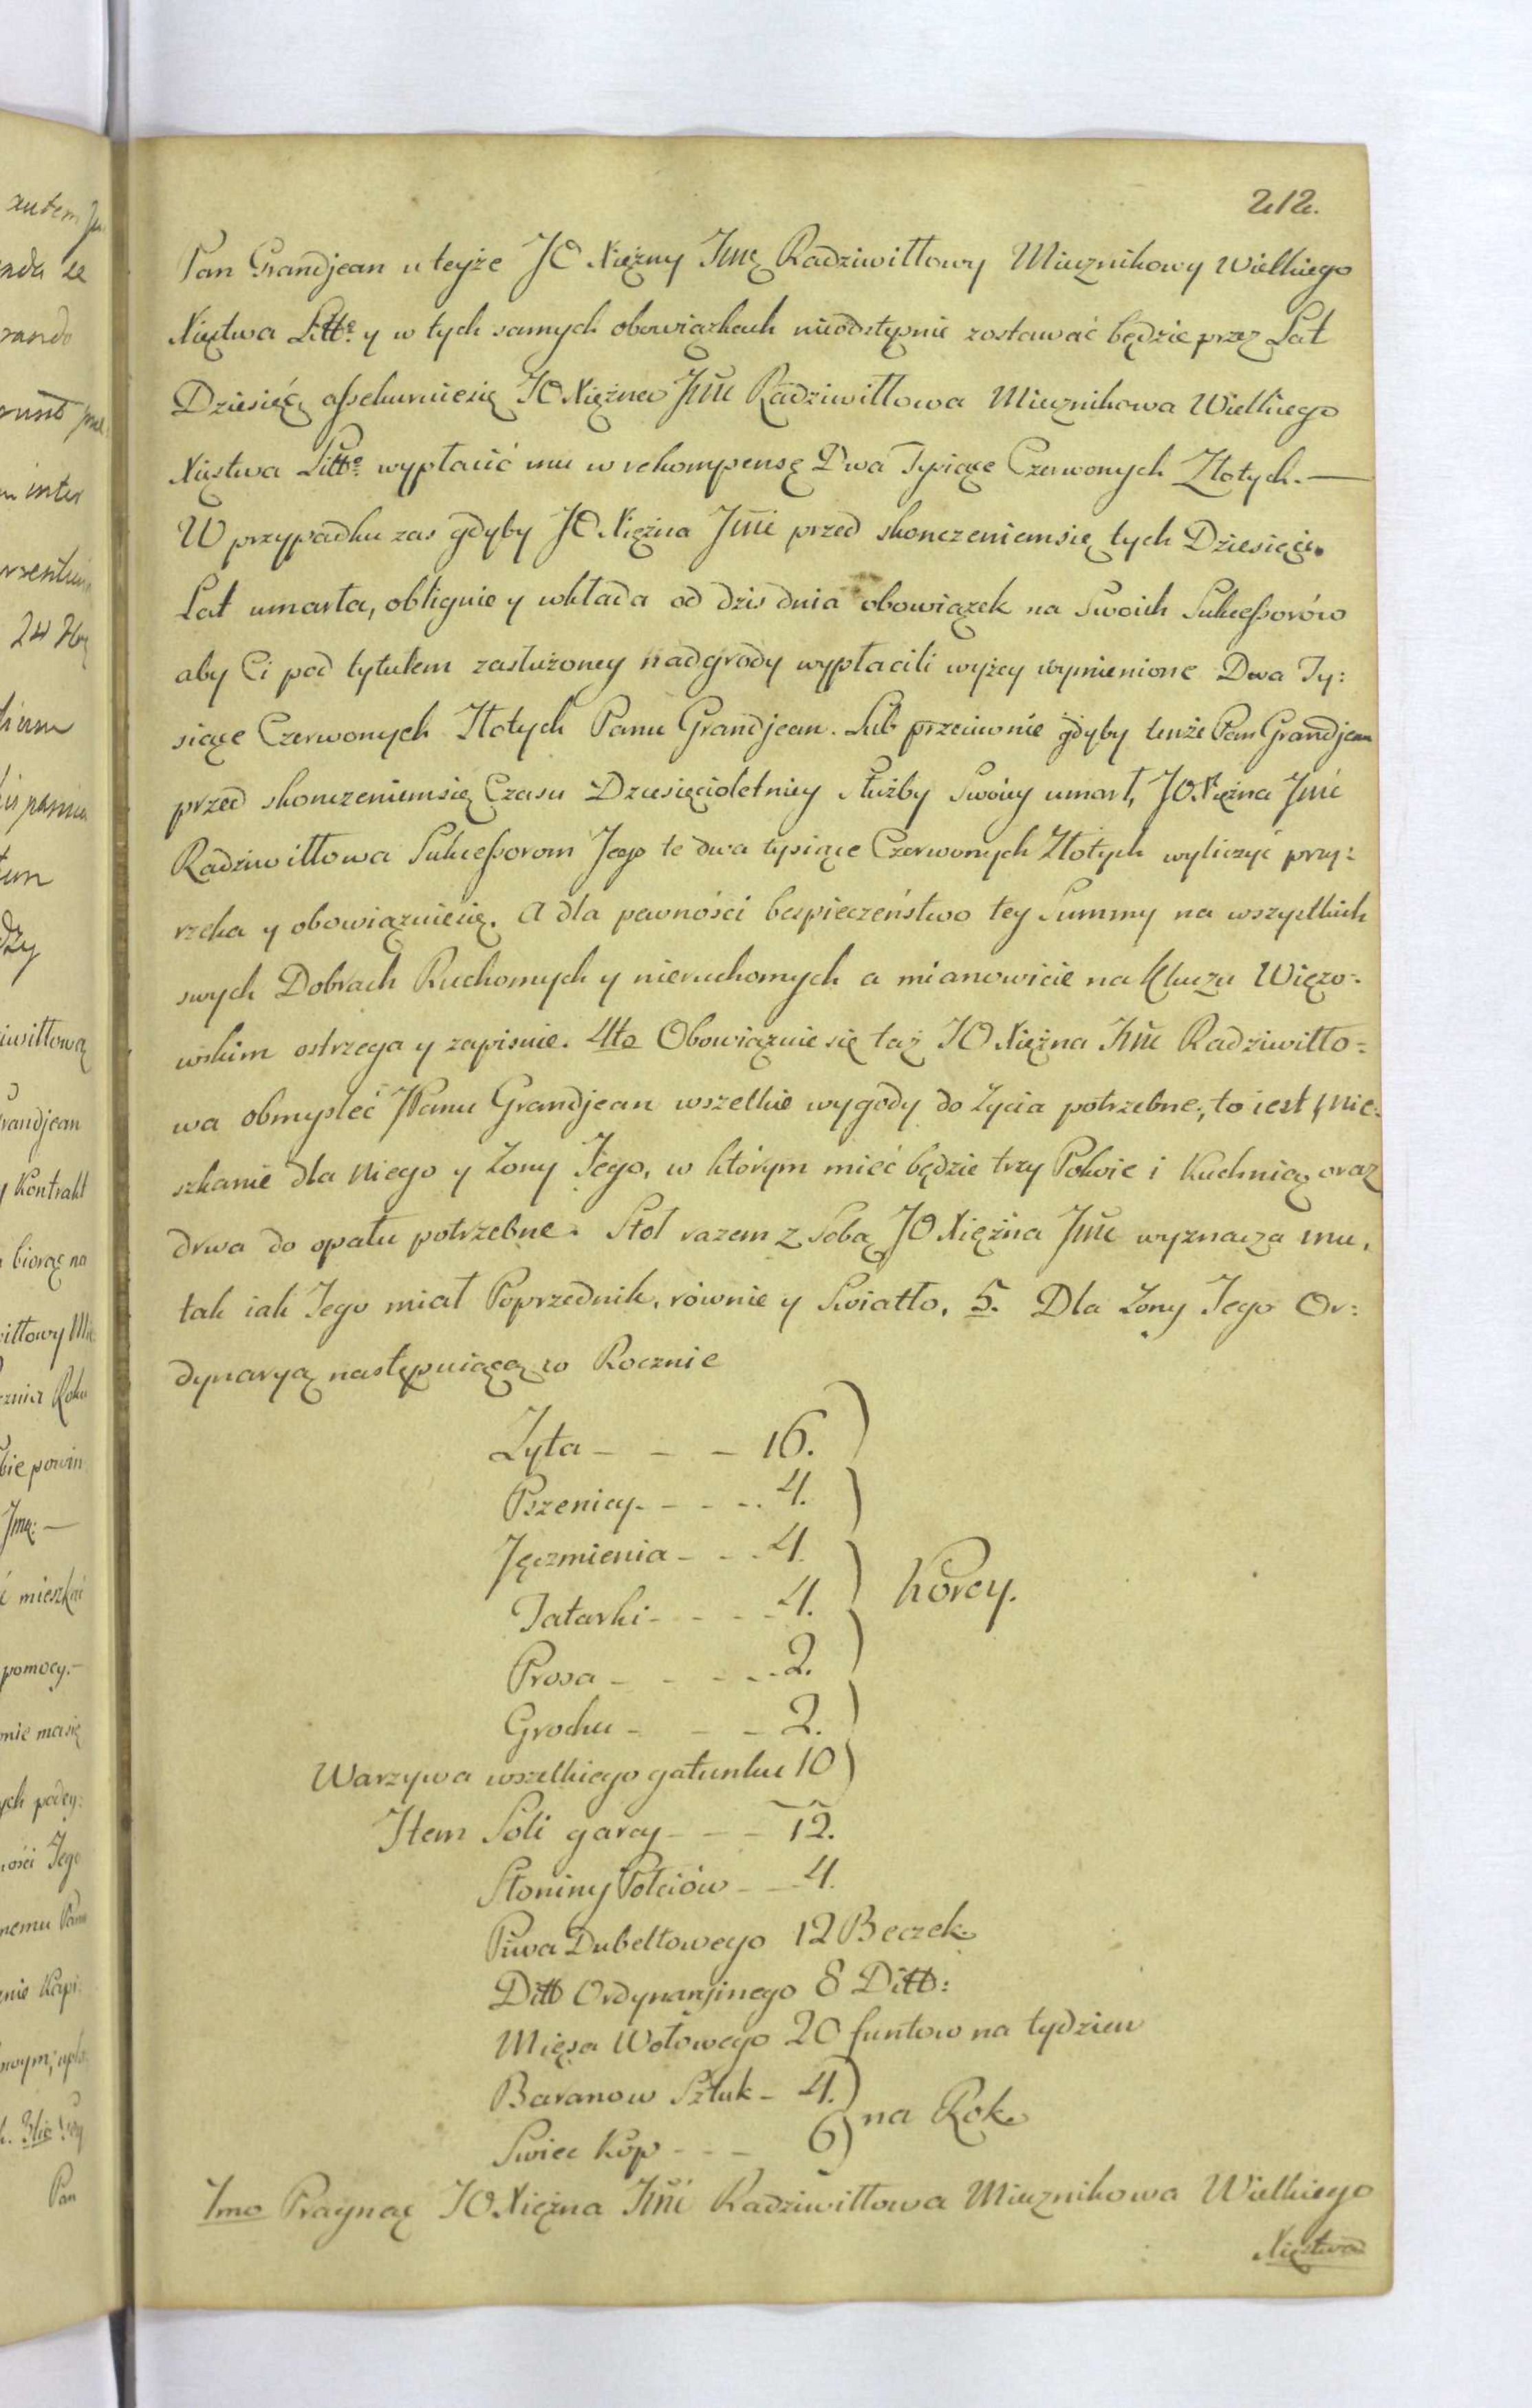 212.
Pan Grandjean u teyże JO Xiężny Jmę Radziwiłłowy Miecznikowy Wielkiego
Xięstwa Litto. y w tych samych obowiązkach nieodstępnie zostawać będzie przez Lat
Dziesięć, assekuruiesię JO Xiężna Jmć Radziwiłłowa Miecznikowa Wielkiego
Xięstwa Litto. wypłacić mu w rekompensę Dwa Tysiące Czerwonych Złotych. —
W przypadku zas gdyby JO Xiężna Jmć przed skonczeniemsię tych Dziesięciu
Lat umarła, obliguie y wkłada od dzis dnia obowiązek na Swoich Sukcessorów
aby Ci pod tytułem zasłużoney nadgrody wypłacili wyżey wymienione Dwa Ty:
siące Czerwonych Złotych Panu Grandjean. Lub przeciwnie gdyby tenże Pan Grandjean
przed skonczeniemsię Czasu Dziesięcioletniey Służby Swoiey umarł, JO Xiężna Jmć
Radziwiłłowa Sukcessorom Jego te dwa tysiące Czerwonych Złotych wyliczyć przy:
rzeka y obowiązuiesię. A dla pewności bespieczeństwo tey Summy na wszystkich
swych Dobrach Ruchomych y nieruchomych a mianowicie na Kluczu Więzo-
wskim ostrzega y zapisuie. 4to Obowiązuie się taż JO Xiężna Jmć Radziwiłło=
wa obmysleć JPanu Grandjean wszelkie wygody do Zycia potrzebne, to iest, Mie:
szkanie dla Niego y Zony Jego, w którym mieć będzie trzy Pokoie i Kuchnią, oraz
drwa do opału potrzebne. Stol razem z Sobą JO Xiężna Jmć wyznacza mu,
tak iak Jego miał Poprzednik, równie y Swiatło. 5. Dla Zony Jego Or:
dynaryą następuiącą co Rocznie
Zyta - - - 16.
Pszenicy - - - 4.
Jęczmienia - - 4.
Tatarki - - - 4.
Prosa - - - 2.
Grochu - - - 2.
Warzywa wszelkiego gatunku 10
Korcy.
Item Soli garcy - - - 12.
Słoniny Połciów - - 4.
Piwa Dubeltowego 12 Beczek
Ditto Ordynaryinego 8 Ditto:
Mięsa Wołowego 20 funtow na tydzien
Baranow Sztuk - 4.
Swiec Kop - - - 6
na Rok
7mo Pragnąc JO Xiężna Jmć Radziwiłłowa Miecznikowa Wielkiego
Xięstwa